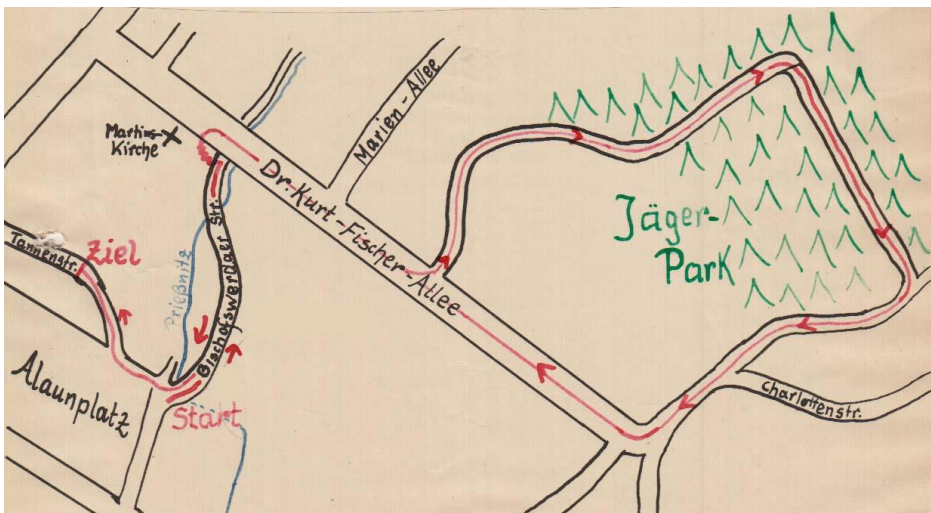 Martins-
Kirche
Marien-Allee
Dr.-Kurt-Fischer-Allee
Jäger-
Park
Tannenstr.
Ziel
Prießnitz
Bischofswerdaer Str.
Alaunplatz
Start
Charlottenstr.